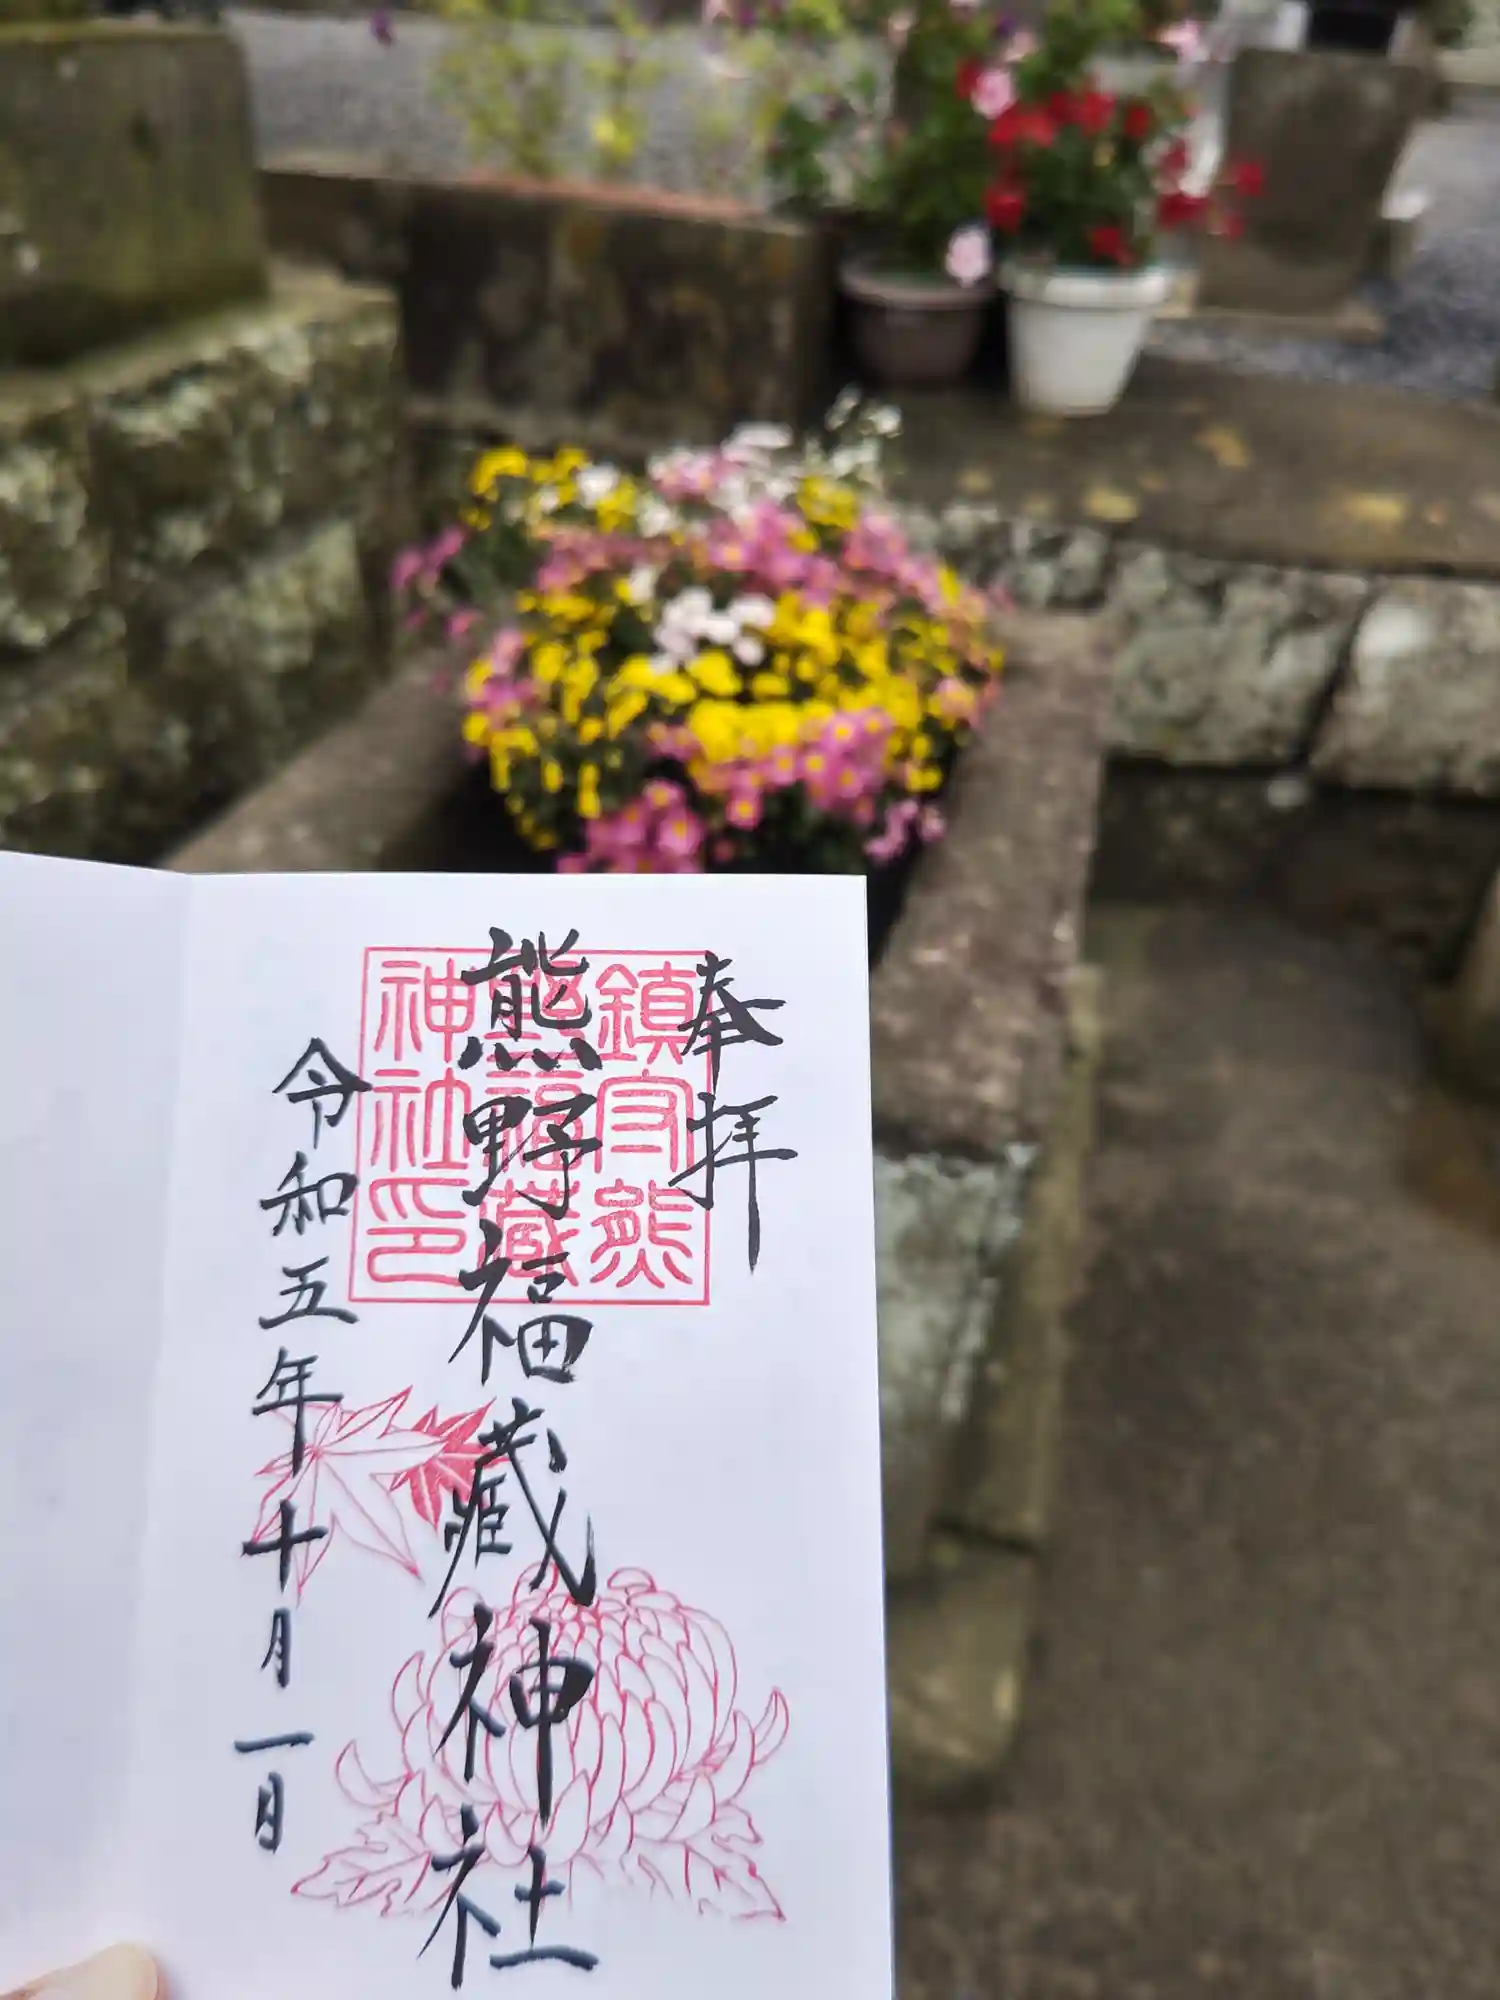 奉拝
熊野福藏神社
令和五年十月一日
鎮守熊
神社印